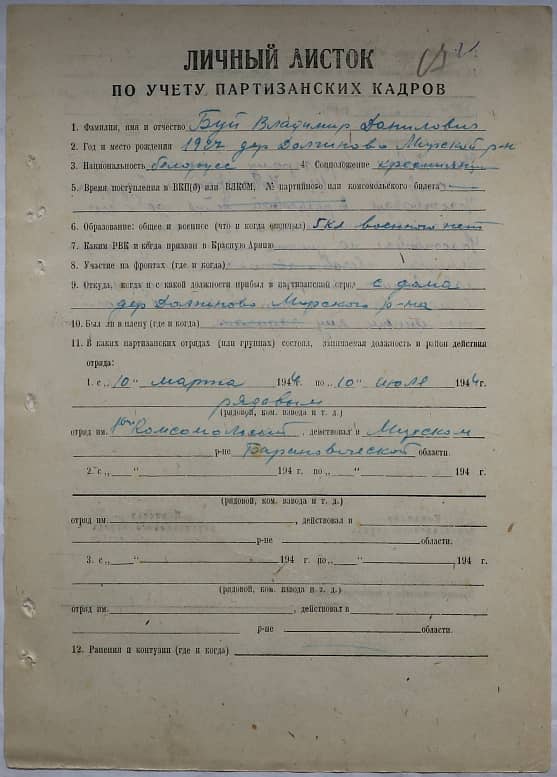 ЛИЧНЫЙ ЛИСТОК
ПО УЧЕТУ ПАРТИЗАНСКИХ КАДРОВ
1. Фамилия, имя и отчество Буй Владимир Данилович
2. Год и место рождения 1927 дер Долгиново Мирской р-н
3. Национальность белорусс 4. Соцположение крестьянин
5. Время поступления в ВКП(б) или ВЛКСМ, № партийного или комсомольского билета
6. Образование: общее и военное (что и когда окончил) 5кл военного нет
7. Каким РВК и когда призван в Красную Армию
8. Участие на фронтах (где и когда)
9. Откуда, когда и с какой должности прибыл в партизанский отряд с дома
дер Долгиново Мирского р-на
10. Был ли в плену (где и когда)
11. В каких партизанских отрядах (или группах) состоял, занимаемая должность и район действия
отряда:
1. с „10" марта 1944г. по „10" июля 1944г.
рядовым
(рядовой, ком. взвода и т. д.)
отряд им. Комсомольский, действовал в Мирском
р-не Барановической области.
2. с „ " 194 г. по „ " 194 г.
(рядовой, ком. взвода и т. д.)
отряд им. , действовал в
р-не области.
3. с „ " 194 г. по „ " 194 г.
(рядовой, ком. взвода и т. д.)
отряд им. , действовал в
р-не области.
12. Ранения и контузии (где и когда)